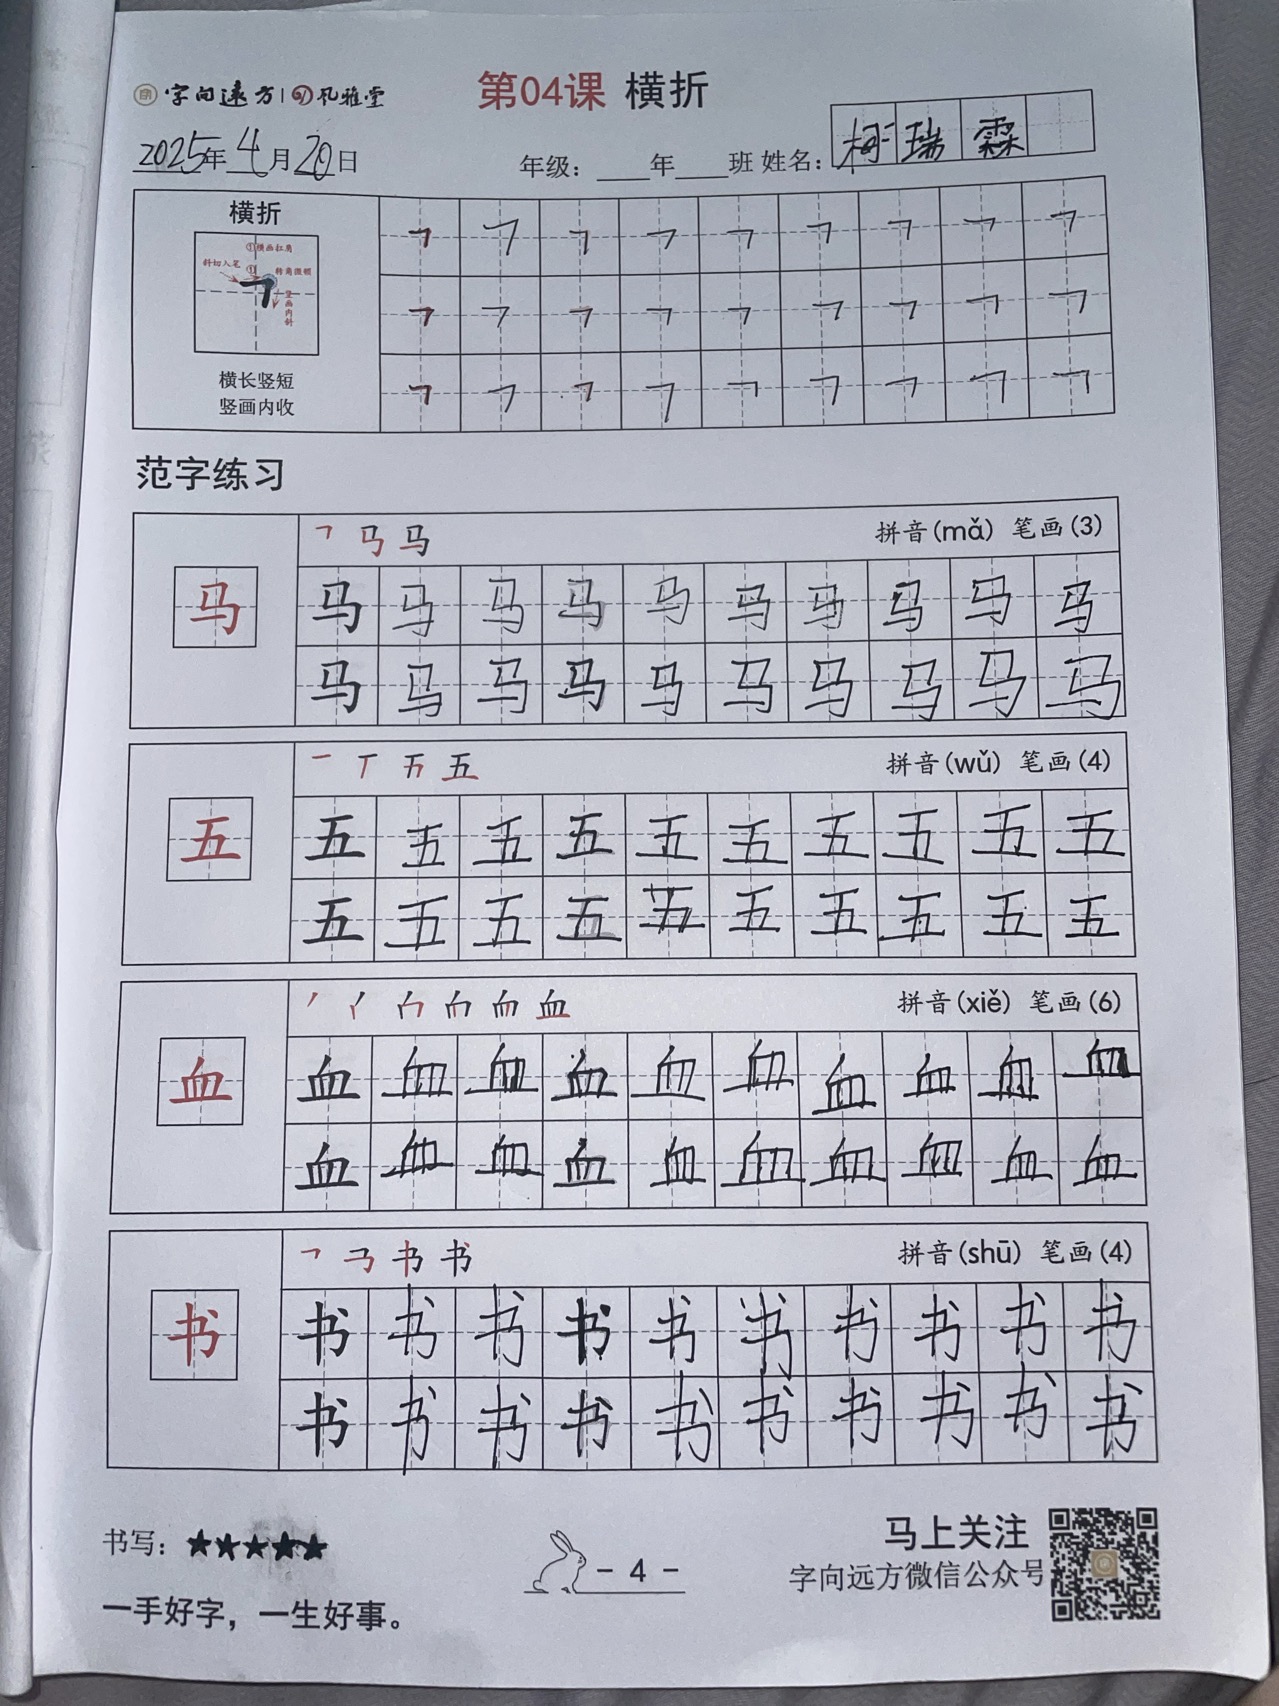 字向远方 风雅堂
第04课 横折
2025年4月20日 年级：____年____班 姓名：柯瑞霖
横折
①横画扛角
斜切入笔 ① 转角顿顿
竖画内斜
横长竖短
竖画内收
范字练习
拼音(mǎ) 笔画(3)
马 马 马 马 马 马 马 马 马 马 马
马 马 马 马 马 马 马 马 马 马
一 丁 五 五 拼音(wǔ) 笔画(4)
五 五 五 五 五 五 五 五 五 五 五
五 五 五 五 五 五 五 五 五 五
血 拼音(xiě) 笔画(6)
血 血 血 血 血 血 血 血 血 血 血
血 血 血 血 血 血 血 血 血 血
书 拼音(shū) 笔画(4)
书 书 书 书 书 书 书 书 书 书 书
书 书 书 书 书 书 书 书 书 书
书写：★★★★★
一手好字，一生好事。
- 4 -
马上关注
字向远方微信公众号